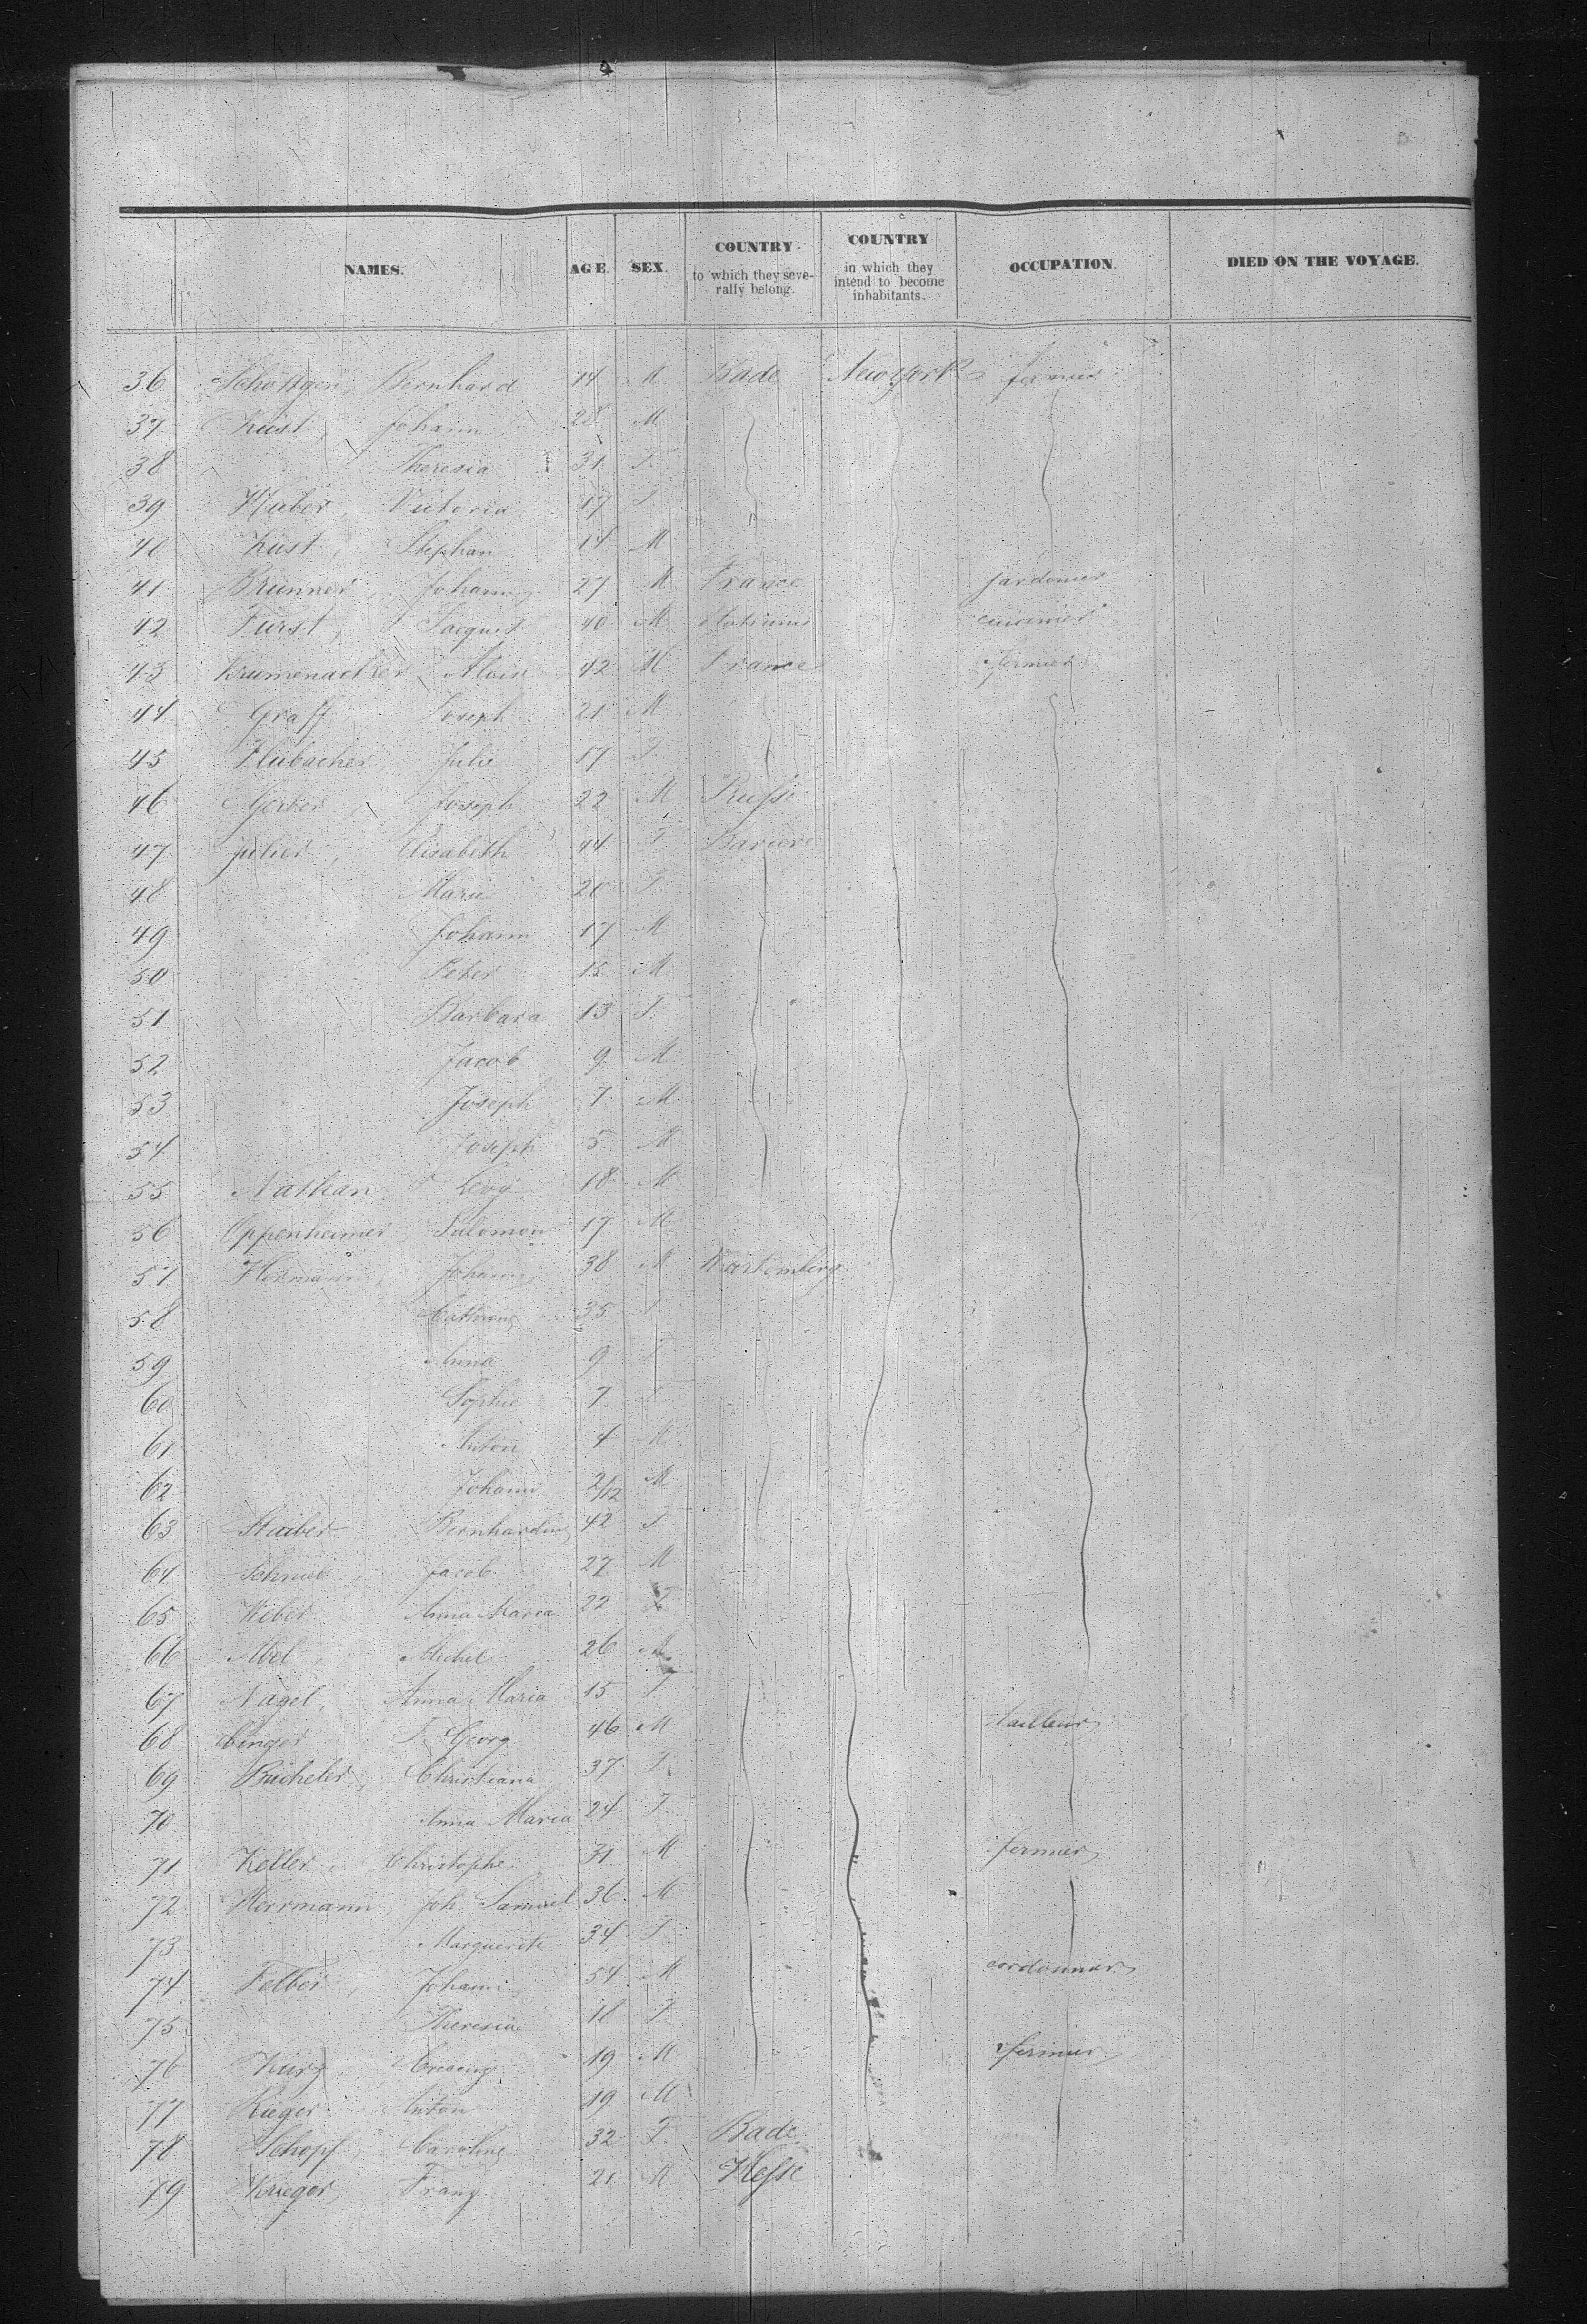 NAMES. AGE. SEX. COUNTRY to which they seve- COUNTRY in which they OCCUPATION. DIED ON THE VOYAGE.
rally belong. intend to become
inhabitants.
36 Schöttgen, Bernhard 14 M Bade New York fermier
37 Küst, Johann 28 M
38 Theresia 31 F.
39 Huber, Victoria 17 F
40 Küst, Stephan 14 M
41 Brunner, Johann 27 M France jardinier
42 Fürst, Jacques 40 M
43 Krumenacker, Alois 42 M France fermier
44 Graff, Joseph 21 M
45 Hubacher Julie 17 F
46 Gerber, Joseph 22 M
47 julier, Elisabeth 44 F Baviere
48 Marie 20 F.
49 Johann 17 M
50 Peter 15 M
51 Barbara 13 F.
52 Jacob 9 M
53 Joseph 7 M
54 Joseph 5 M
55 Nathan Levy 18 M
56 Oppenheimer Salomon 17 M
57 Hermann, Johann 38 M Wurtemberg
58 35 F
59 Anna 9 F
60 Sophie 7
61 Anton 4 M
62 Johann 2/12 M
63 Staiber Bernhardine 42 F
64 Jacob 27 M
65 Weber Anna Maria 22 F
66 Abel, Michel 26 M
67 Nagel, Anna Maria 15 F
68 Georg 46 M tailleur
69 Bücheler, Christiana 37 F.
70 Anna Maria 24 F.
71 Keller, Christophe 31 M fermier
72 Herrmann, Joh. Samuel 36 M
73 Marguerite 34 F.
74 Felber, Johann 54 M cordonnier
75 Theresia F.
76 Kurz 19 M fermier
77 Rieger Anton 19 M
78 Schopf, Caroline 32 F. Bade
79 Krieger, Franz 21 M Hesse